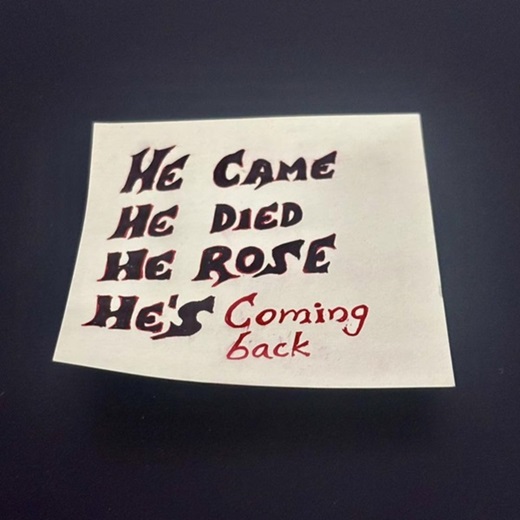 HE CAME
HE DIED
HE ROSE
HE'S Coming
back